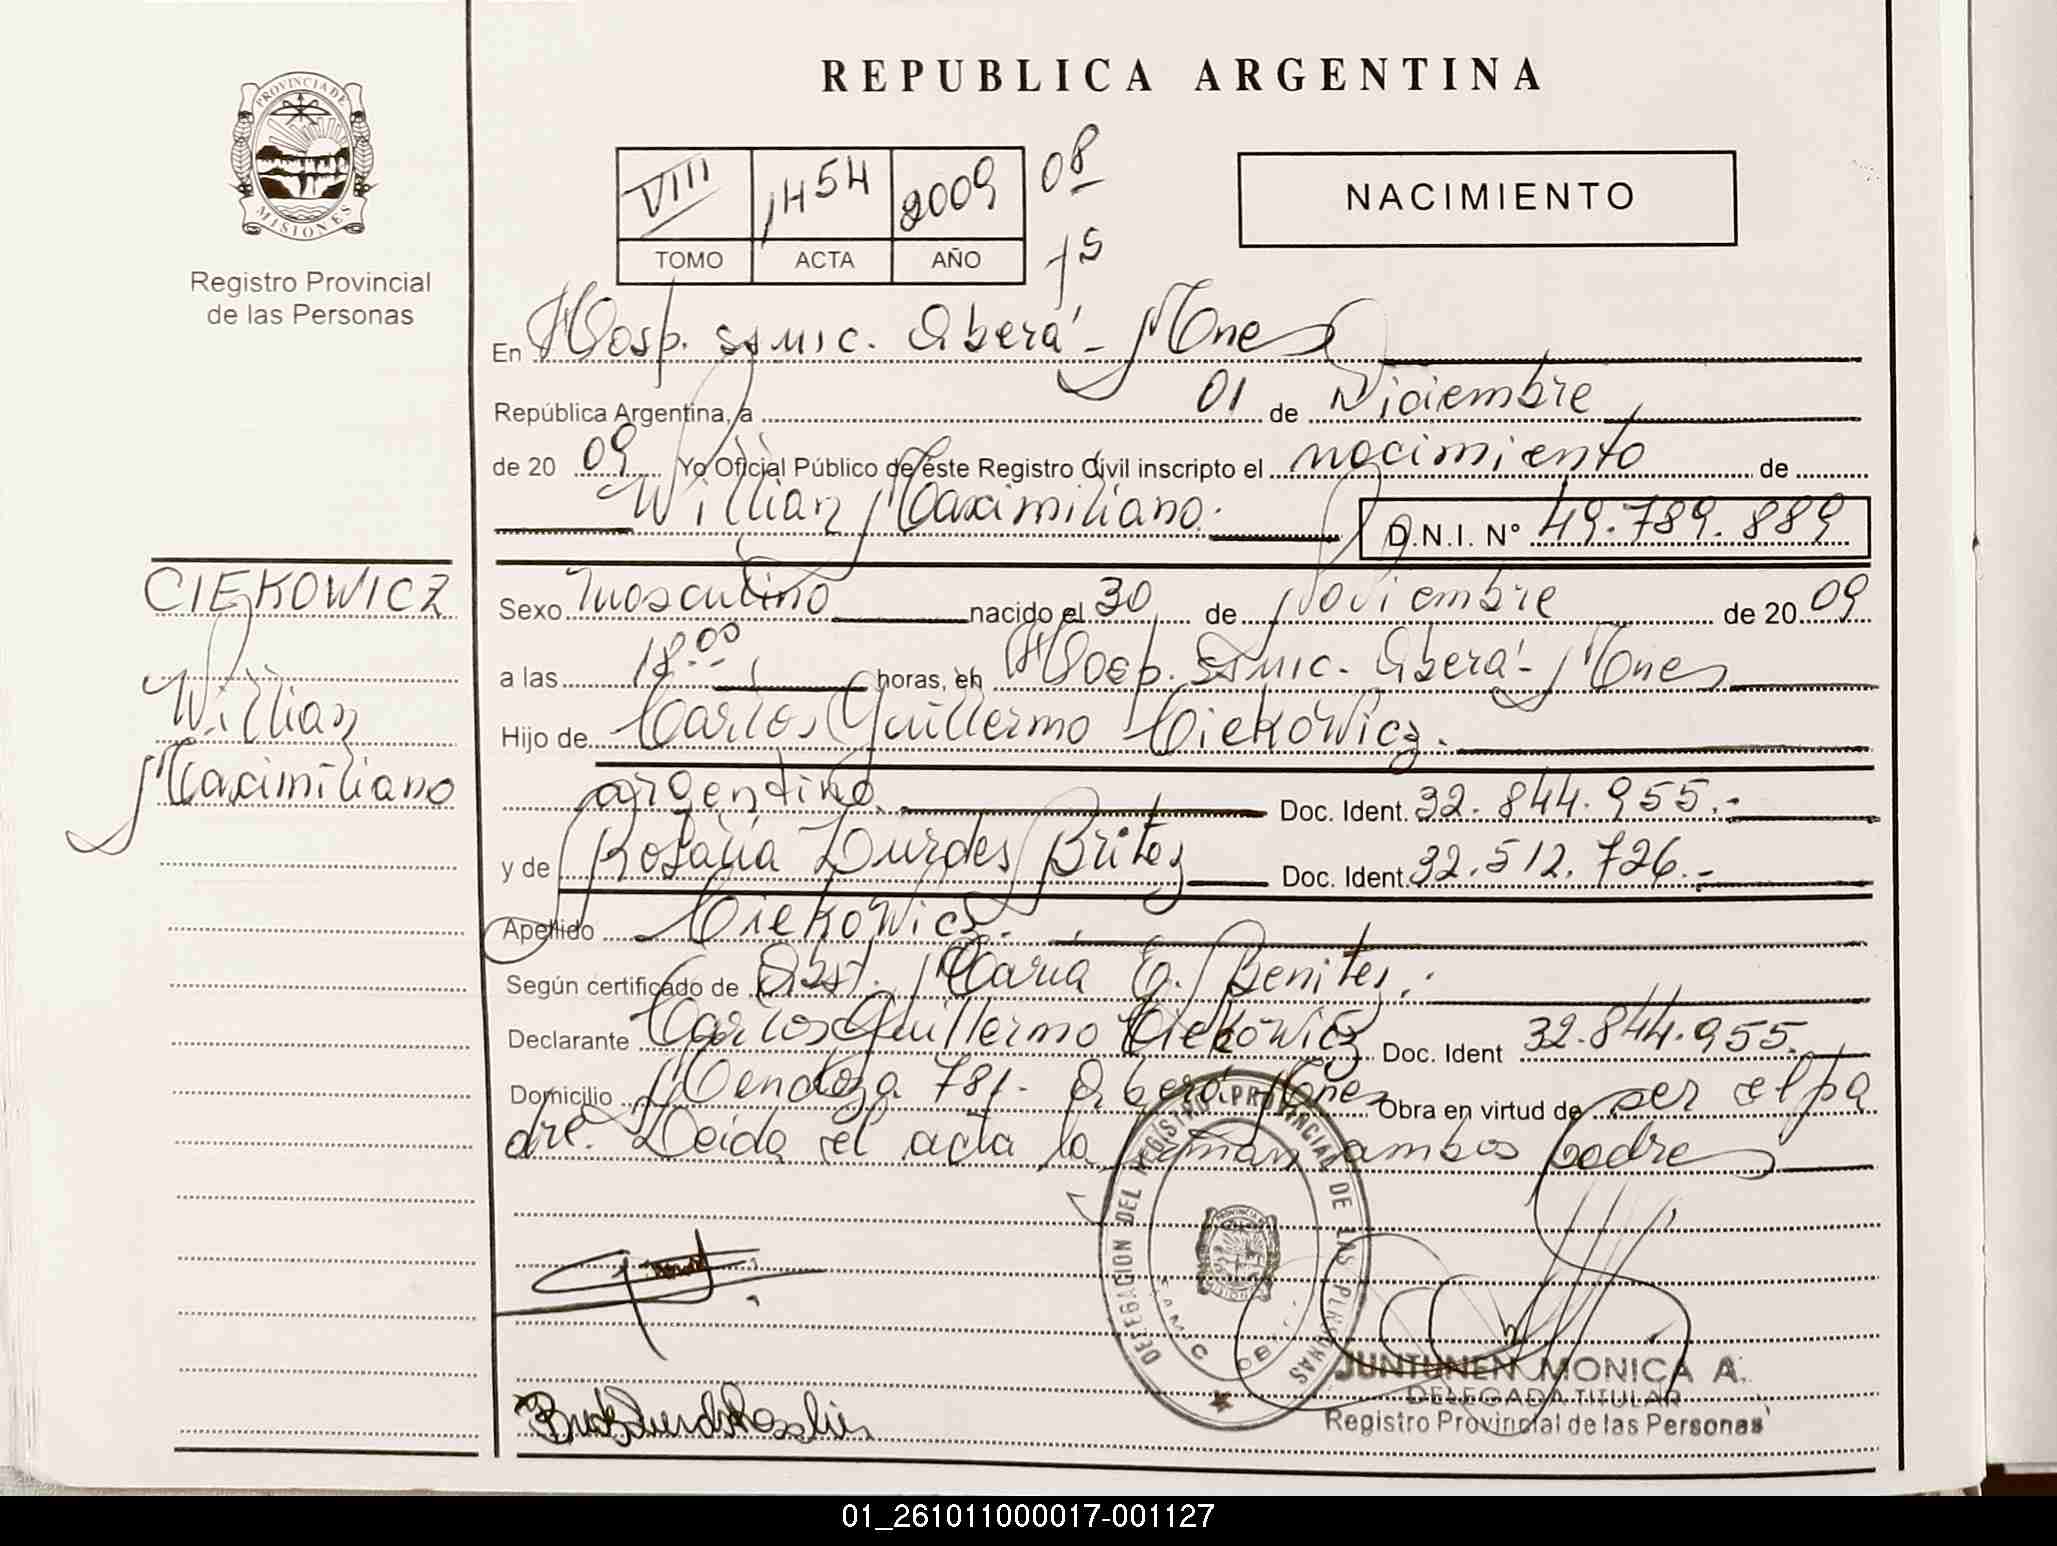 REPUBLICA ARGENTINA
PROVINCIA DE
MISIONES
Registro Provincial
de las Personas
VIII 1454 2009 08
TOMO ACTA AÑO 15
NACIMIENTO
En Hosp. SSMIC. Oberá - Mnes
República Argentina, a 01 de Diciembre
de 20 09 Yo Oficial Público de este Registro Civil inscripto el nacimiento de
Willian Maximiliano. D.N.I. Nº 49.789.889
CIEKOWICZ
Willian
Maximiliano
Sexo Masculino nacido el 30 de Noviembre de 20 09
a las 18.00 horas, en Hosp. SSMIC. Oberá - Mnes
Hijo de Carlos Guillermo Ciekowicz.
argentino. Doc. Ident. 32.844.955.-
y de Rosalia Lurdes Britez Doc. Ident. 32.512.726.-
Apellido Ciekowicz.
Según certificado de Obst. Maria E. Benitez.
Declarante Carlos Guillermo Ciekowicz Doc. Ident 32.844.955.
Domicilio Mendoza 781 - Oberá Mnes Obra en virtud de ser el pa
dre. Leida el acta la firman ambos padres
DELEGACION DEL REGISTRO PROVINCIAL DE LAS PERSONAS
JUNTUNEN MONICA A.
DELEGADA TITULAR
Registro Provincial de las Personas
01_261011000017-001127